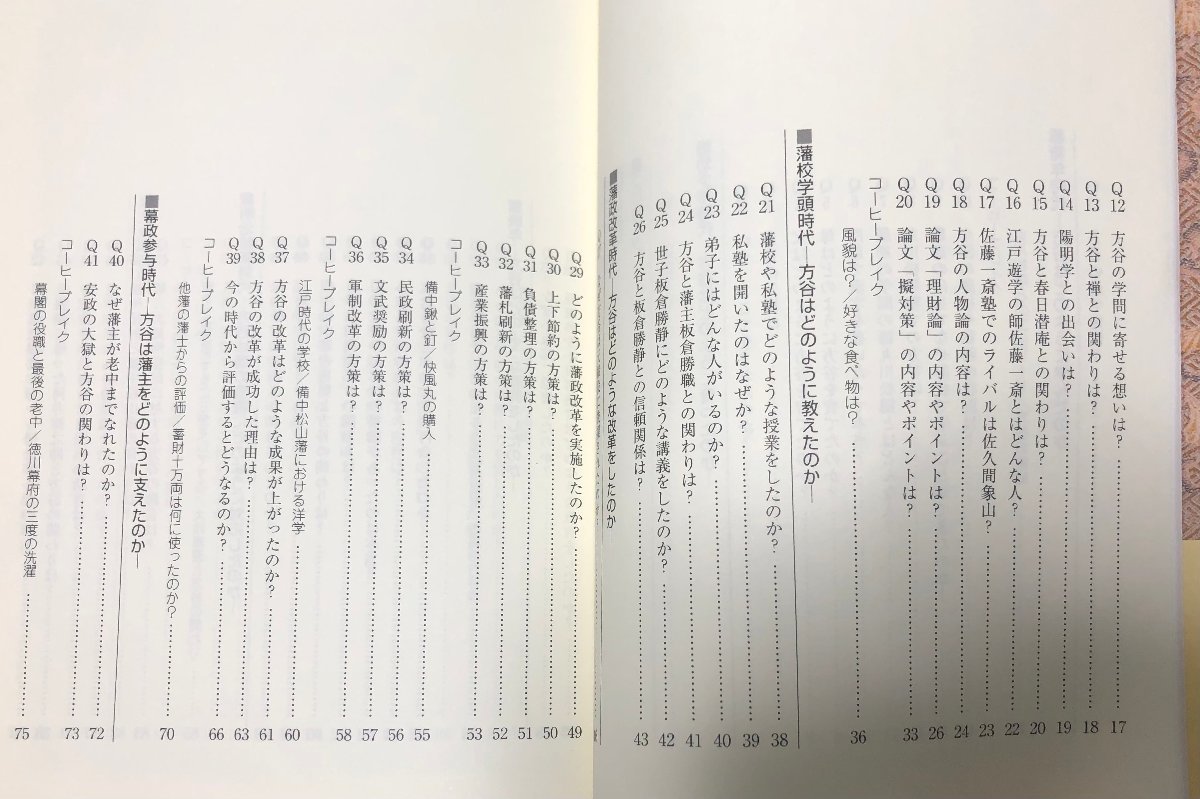 Q12 方谷の学問に寄せる想いは？……17
Q13 方谷と禅との関わりは？……18
Q14 陽明学との出会いは？……19
Q15 方谷と春日潜庵との関わりは？……20
Q16 江戸遊学の師佐藤一斎とはどんな人？……22
Q17 佐藤一斎塾でのライバルは佐久間象山？……23
Q18 方谷の人物論の内容は？……24
Q19 論文「理財論」の内容やポイントは？……26
Q20 論文「擬対策」の内容やポイントは？……33
コーヒーブレイク
風貌は？／好きな食べ物は？……36
■藩校学頭時代―方谷はどのように教えたのか―
Q21 藩校や私塾でどのような授業をしたのか？……38
Q22 私塾を開いたのはなぜか？……39
Q23 弟子にはどんな人がいるのか？……40
Q24 方谷と藩主板倉勝職との関わりは？……41
Q25 世子板倉勝静にどのような講義をしたのか？……42
Q26 方谷と板倉勝静との信頼関係は？……43
■藩政改革時代―方谷はどのような改革をしたのか―
Q29 どのように藩政改革を実施したのか？……49
Q30 上下節約の方策は？……50
Q31 負債整理の方策は？……51
Q32 藩札刷新の方策は？……52
Q33 産業振興の方策は？……53
コーヒーブレイク
備中鍬と釘／快風丸の購入……55
Q34 民政刷新の方策は？……56
Q35 文武奨励の方策は？……57
Q36 軍制改革の方策は？……58
コーヒーブレイク
江戸時代の学校／備中松山藩における洋学……60
Q37 方谷の改革はどのような成果が上がったのか？……61
Q38 方谷の改革が成功した理由は？……63
Q39 今の時代から評価するとどうなるのか？……66
コーヒーブレイク
他藩の藩士からの評価／蓄財十万両は何に使ったのか？……70
■幕政参与時代―方谷は藩主をどのように支えたのか―
Q40 なぜ藩主が老中までなれたのか？……72
Q41 安政の大獄と方谷の関わりは？……73
コーヒーブレイク
幕閣の役職と最後の老中／徳川幕府の三度の洗濯……75